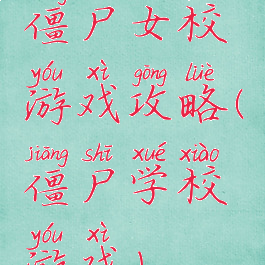 僵尸女校
yóu xì gōng lüè
游戏攻略(
jiāng shī xué xiào
僵尸学校
yóu xì
游戏)